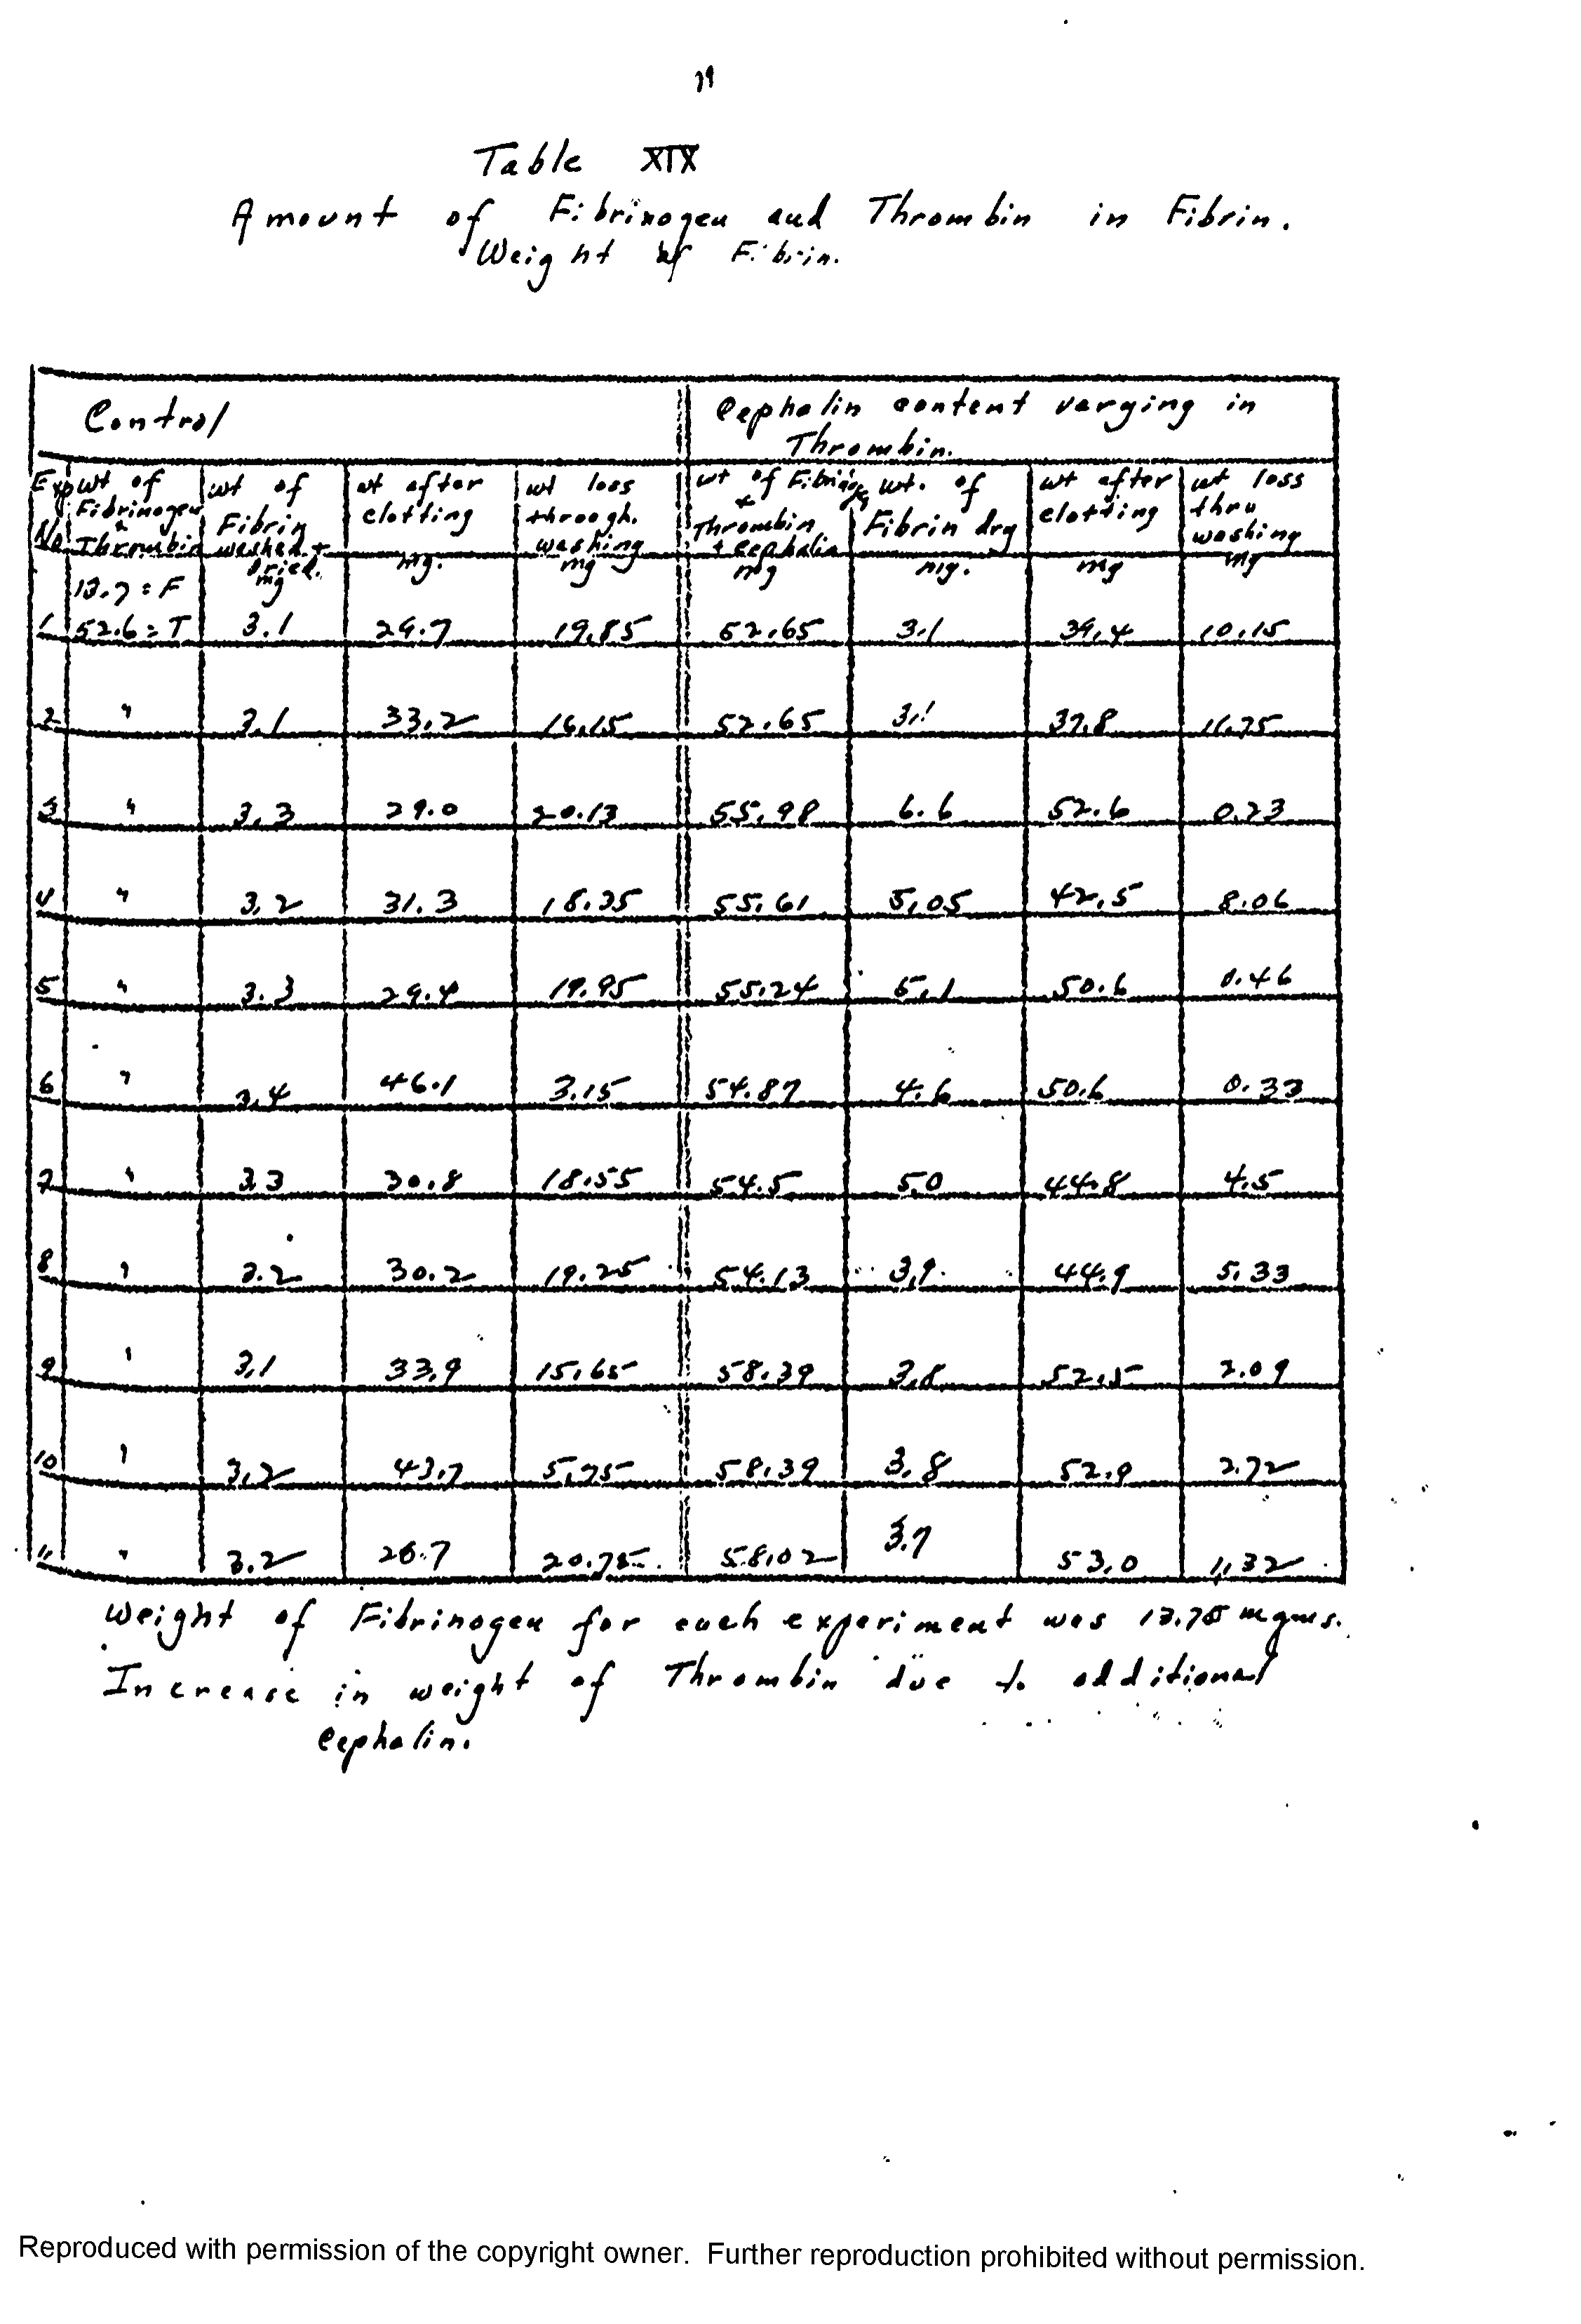 79
Table XIX
Amount of Fibrinogen and Thrombin in Fibrin.
Weight of Fibrin.
Control
Cephalin content varying in
Thrombin.
Exp No | wt of Fibrinogen + Thrombin | wt of Fibrin washed + dried. mg | wt after clotting mg. | wt loss through. washing mg | wt of Fibrinogen + Thrombin + cephalin mg | wt. of Fibrin dry mg. | wt after clotting mg | wt loss thru washing mg
13.7 = F
1 | 52.6 = T | 3.1 | 29.7 | 19.85 | 52.65 | 3.1 | 39.4 | 10.15
2 | " | 3.1 | 33.2 | 16.15 | 52.65 | 3.1 | 37.8 | 11.75
3 | " | 3.3 | 29.0 | 20.13 | 55.98 | 6.6 | 52.6 | 0.23
4 | " | 3.2 | 31.3 | 18.35 | 55.61 | 5.05 | 42.5 | 8.06
5 | " | 3.3 | 29.4 | 19.95 | 55.24 | 5.1 | 50.6 | 0.46
6 | " | 3.4 | 46.1 | 3.15 | 54.87 | 4.6 | 50.6 | 0.33
7 | " | 3.3 | 30.8 | 18.55 | 54.5 | 5.0 | 44.8 | 4.5
8 | " | 3.2 | 30.2 | 19.25 | 54.13 | 3.9 | 44.9 | 5.33
9 | " | 3.1 | 33.9 | 15.65 | 58.39 | 3.8 | 52.5 | 2.09
10 | " | 3.2 | 43.7 | 5.75 | 58.39 | 3.8 | 52.9 | 2.72
11 | " | 3.2 | 28.7 | 20.75 | 58.02 | 3.7 | 53.0 | 1.32
Weight of Fibrinogen for each experiment was 13.75 mgms.
Increase in weight of Thrombin due to additional
Cephalin.
Reproduced with permission of the copyright owner. Further reproduction prohibited without permission.